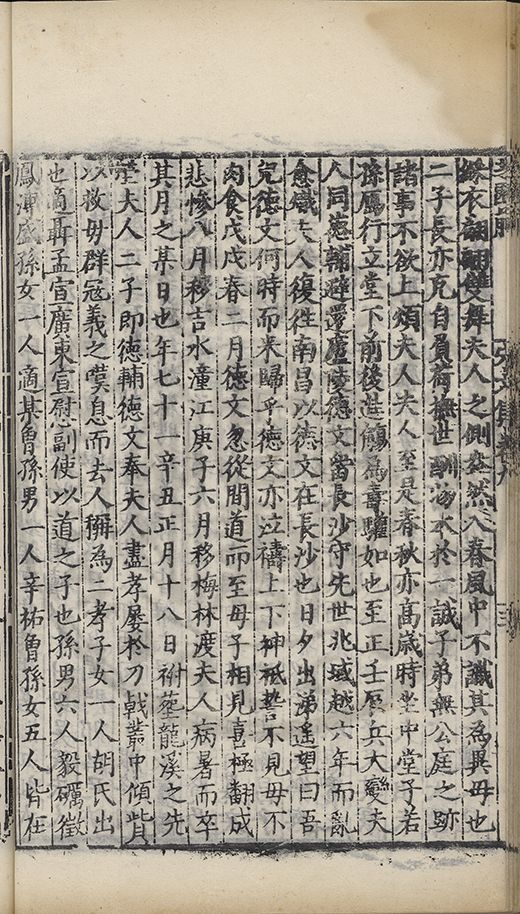 綵衣翩翩雙舞夫人之側盎然入春風中不識其為異母也
二子長亦克自負荷撫世酬物一於一誠子弟無公庭之跡
諸事不欲上煩夫人夫人至是春秋亦高歲時坐中堂子若
孫鴈行立堂下前後進觴為壽驩如也至正壬辰兵大變夫
人同德輔避還廬陵德文留長沙守先世兆域越六年而亂
愈熾夫人復往南昌以德文在長沙也日夕出涕遥望曰吾
兒德文何時而来歸乎德文亦泣禱上下神祇誓不見母不
肉食戊戌春二月德文忽從間道而至母子相見喜極翻成
悲慘八月移吉水潼江庚子六月移梅林渡夫人病暑而卒
其月之某日也年七十一辛丑正月十八日祔塟龍溪之先
塋夫人二子即德輔德文奉夫人盡孝屡於刀戟叢中傾貲
以救母群冦義之嘆息而去人稱為二孝子女一人胡氏出
也適聶孟宣廣東宣慰副使以道之子也孫男六人毅礪徵
鳳溥盛孫女一人適某曾孫男一人辛祐曾孫女五人皆在